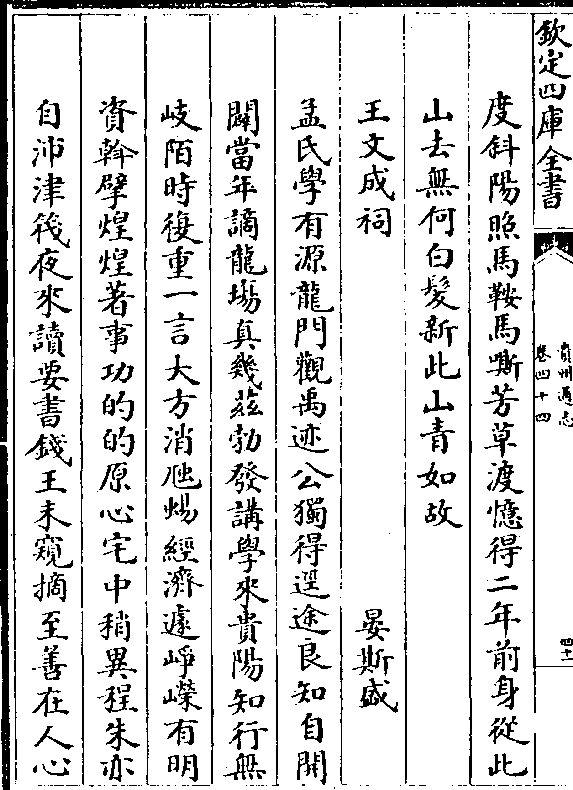 欽定四庫全書
貴州通志
卷四十四
四十二
度斜陽照馬鞍馬嘶芳草渡憶得二年前身從此
山去無何白髮新此山青如故
王文成祠 晏斯盛
孟氏學有源龍門觀禹迹公獨得逕途良知自開
闢當年謫龍場真幾茲勃發講學來貴陽知行無
岐陌時復重一言大方消虺蜴經濟遽崢嶸有明
資斡擘煌煌著事功的的原心宅中稍異程朱亦
自沛津筏夜來讀要書錢王未窺摘至善在人心